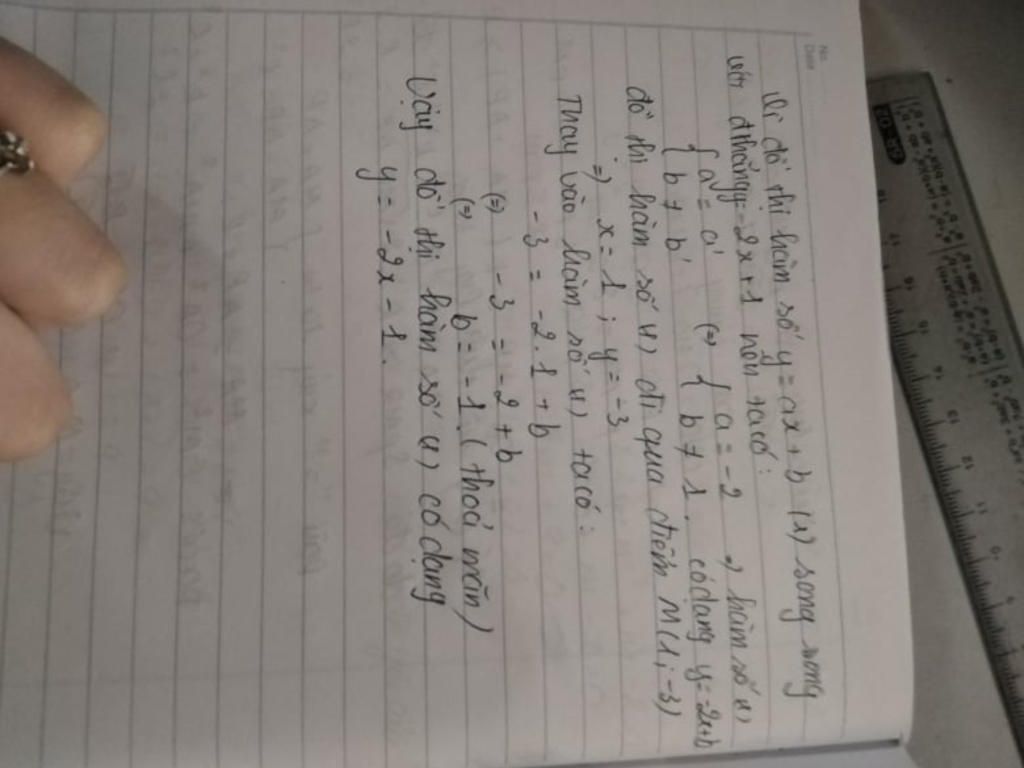 No.
Date
Vì đồ thị hàm số y = ax + b (1) song song
với đthẳng y = -2x + 1 nên ta có:
{ a = a' (=) { a = -2 => hàm số (1)
{ b ≠ b' { b ≠ 1 . có dạng y = -2x+b
đồ thị hàm số (1) đi qua điểm M(1; -3)
=) x = 1 ; y = -3
Thay vào hàm số (1) ta có:
-3 = -2.1 + b
(=) -3 = -2 + b
(=) b = -1. (thoả mãn)
Vậy đồ thị hàm số (1) có dạng
y = -2x - 1.